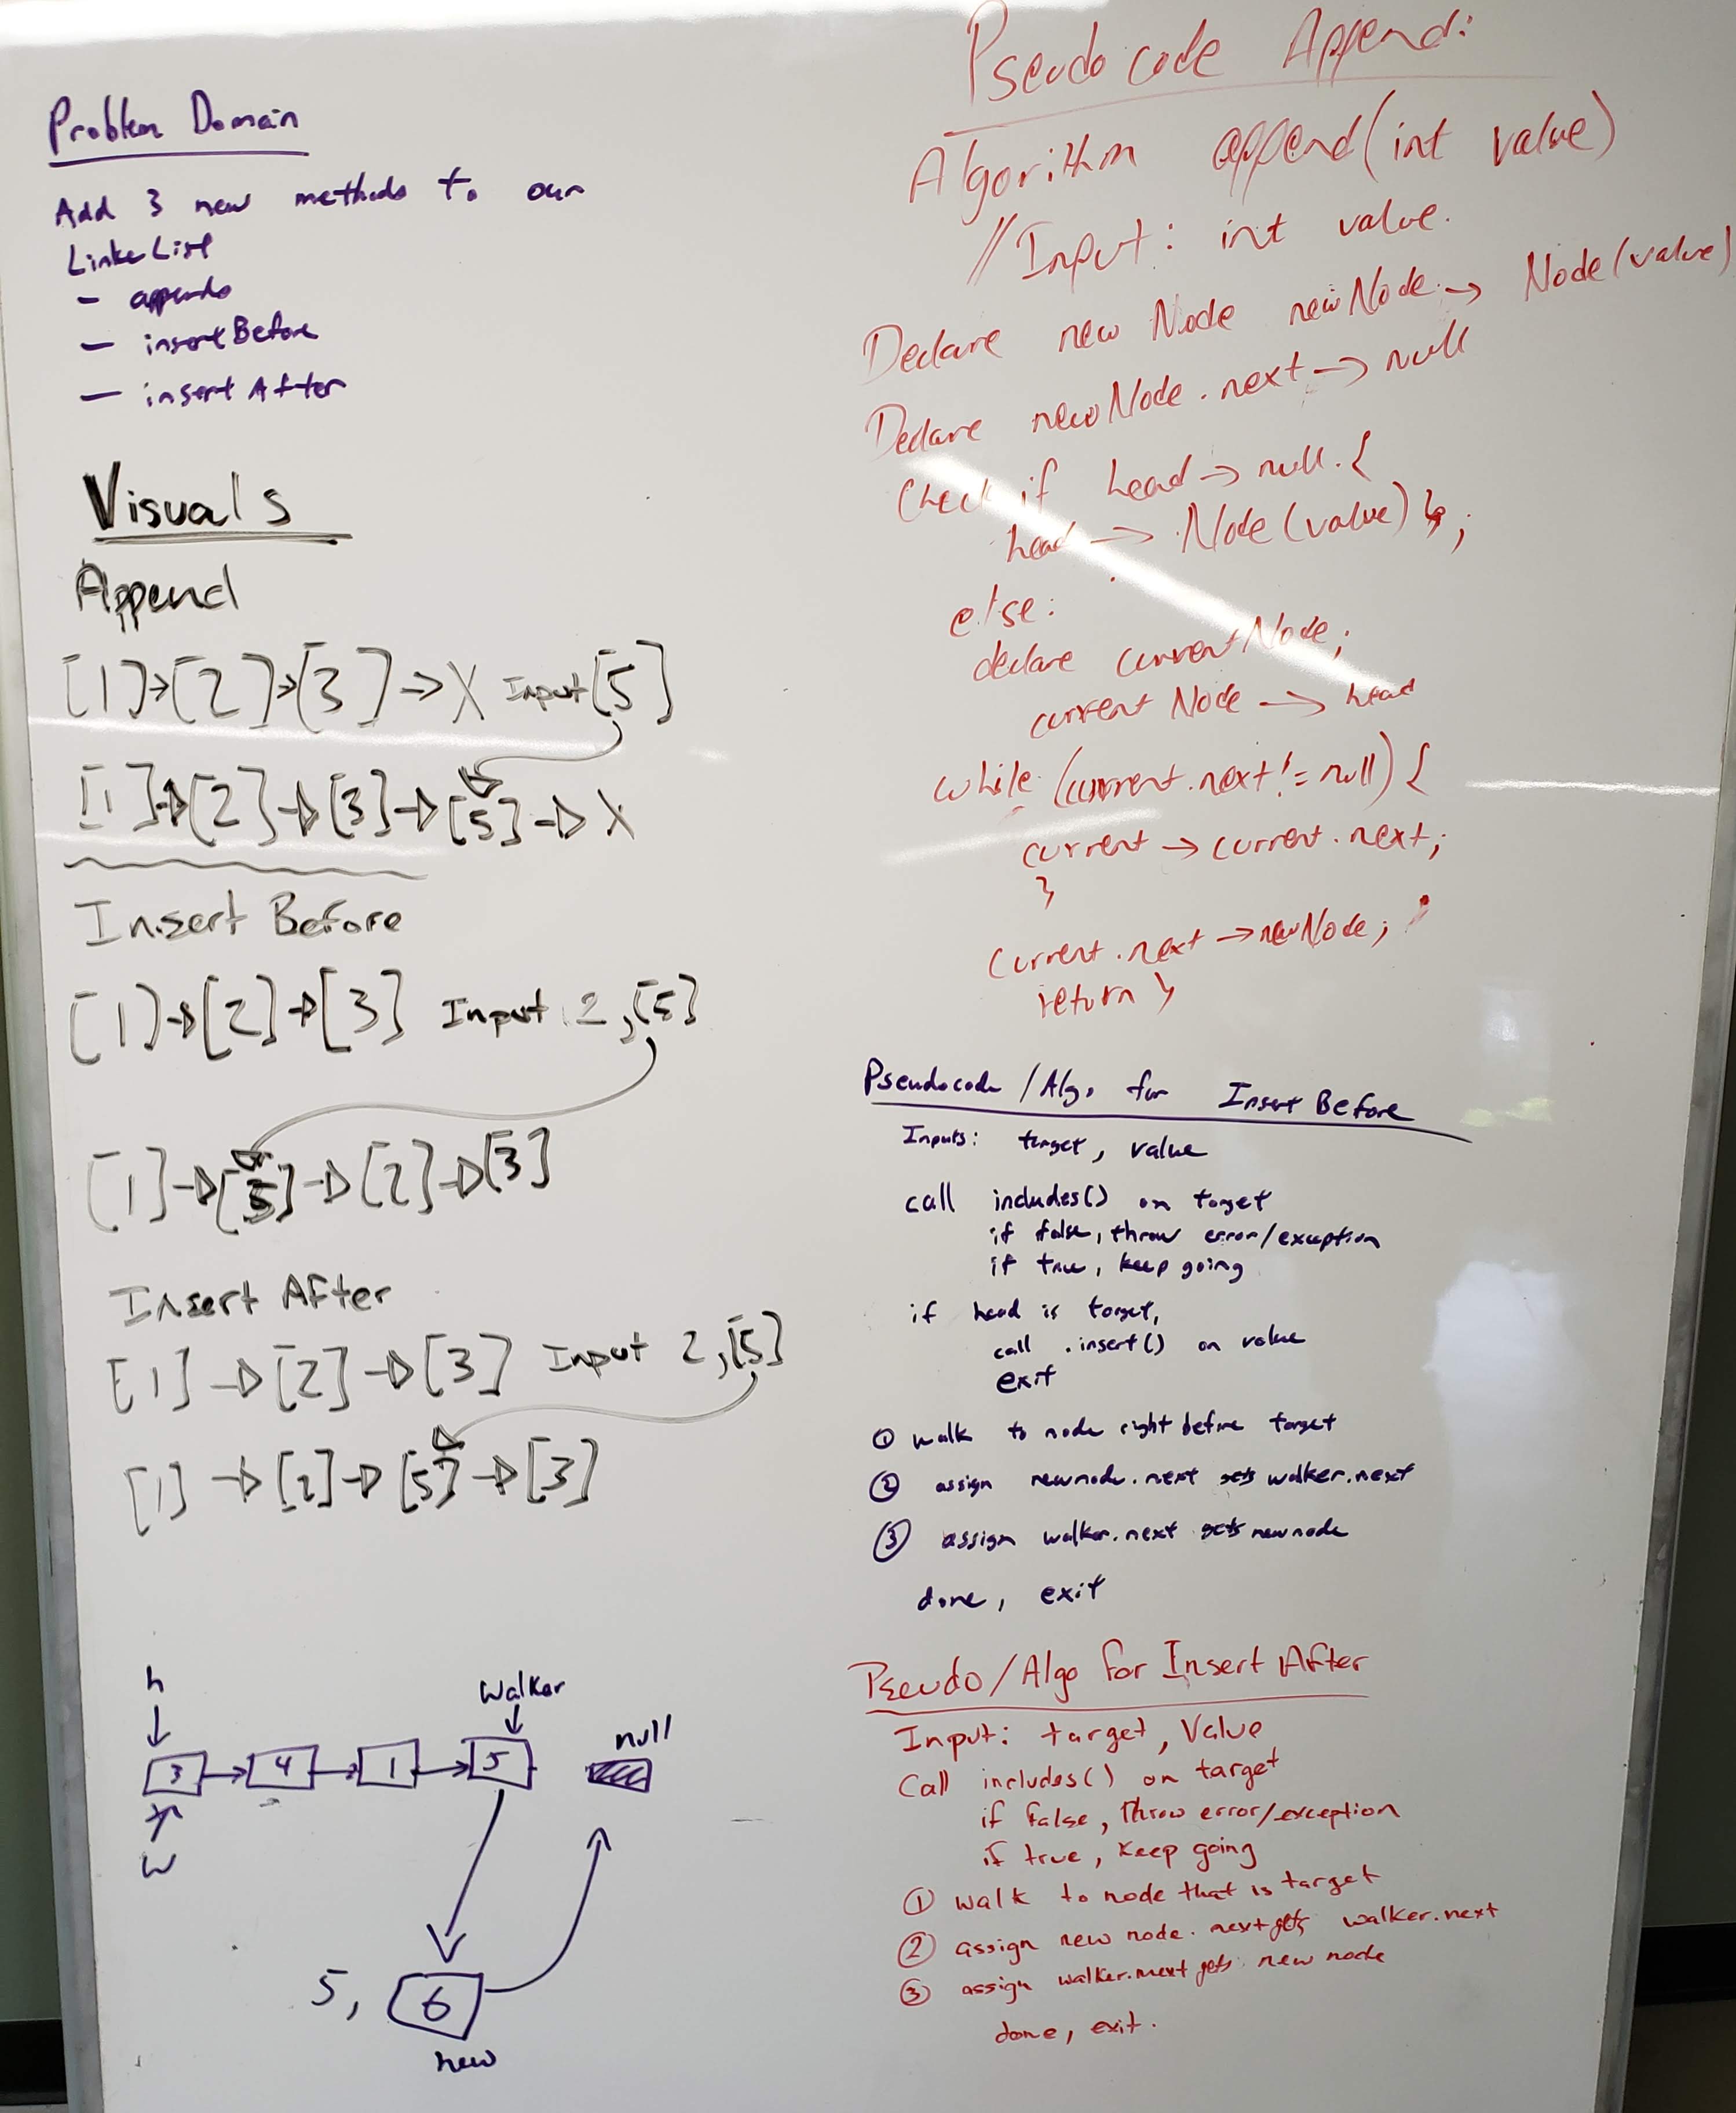 Problem Domain
Add 3 new methods to our
Linke List
- append
- insertBefore
- insert After
Visuals
Append
[1]→[2]→[3]→X Input [5]
[1]→[2]→[3]→[5]→X
Insert Before
[1]→[2]→[3] Input 2,[5]
[1]→[5]→[2]→[3]
Insert After
[1]→[2]→[3] Input 2,[5]
[1]→[2]→[5]→[3]
h
Walker
null
3 → 4 → 1 → 5
w
5, 6
new
Pseudo code Append:
Algorithm append(int value)
//Input: int value.
Declare new Node newNode → Node(value)
Declare newNode.next → null
Check if head → null. {
head → Node(value) };
else:
declare currentNode;
current Node → head
while (current.next != null) {
current → current.next;
}
current.next → newNode;
return }
Pseudocode / Algo for Insert Before
Inputs: target, value
call includes() on target
if false, throw error/exception
if true, keep going
if head is target,
call .insert() on value
exit
① walk to node right before target
② assign newnode.next gets walker.next
③ assign walker.next gets newnode
done, exit
Pseudo/Algo for Insert After
Input: target, Value
Call includes() on target
if false, throw error/exception
if true, keep going
① walk to node that is target
② assign new node.next gets walker.next
③ assign walker.next gets new node
done, exit.